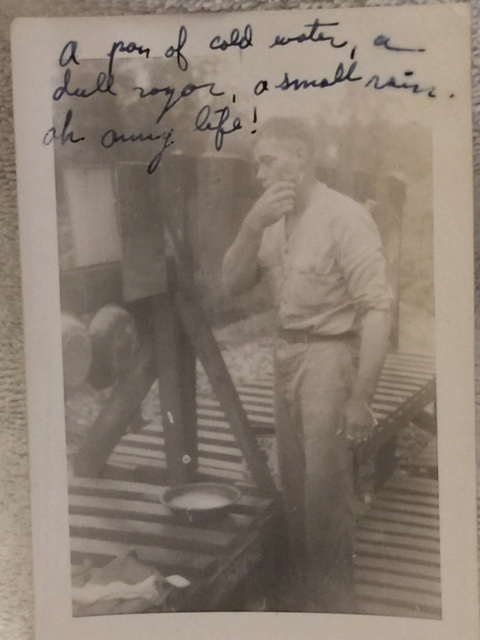 A pan of cold water, a
dull razor, a small rain.
Oh army life!